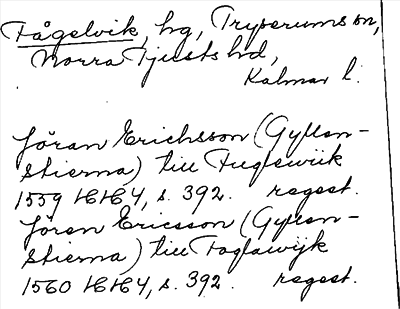 Fågelvik, hg, Tryserums sn,
Norra Tjusts hd,
Kalmar l.
Jöran Erichsson (Gyllen-
stierna) till Fuglewiik
1559 HH 4, s. 392. regest.
Jöran Ericsson (Gyllen-
stierna) till Foglawijk
1560 HH 4, s. 392. regest.